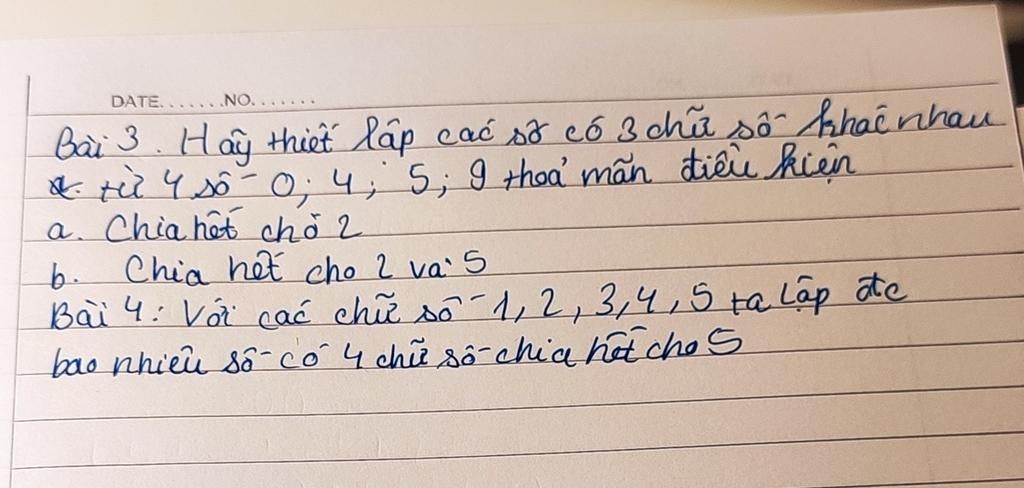 DATE.......NO.......
Bài 3. Hãy thiết lập các số có 3 chữ số khác nhau
từ 4 số 0; 4; 5; 9 thoả mãn điều kiện
a. Chia hết chở 2
b. Chia hết cho 2 và 5
Bài 4: Với các chữ số 1, 2, 3, 4, 5 ta lập đc
bao nhiêu số có 4 chữ số chia hết cho 5